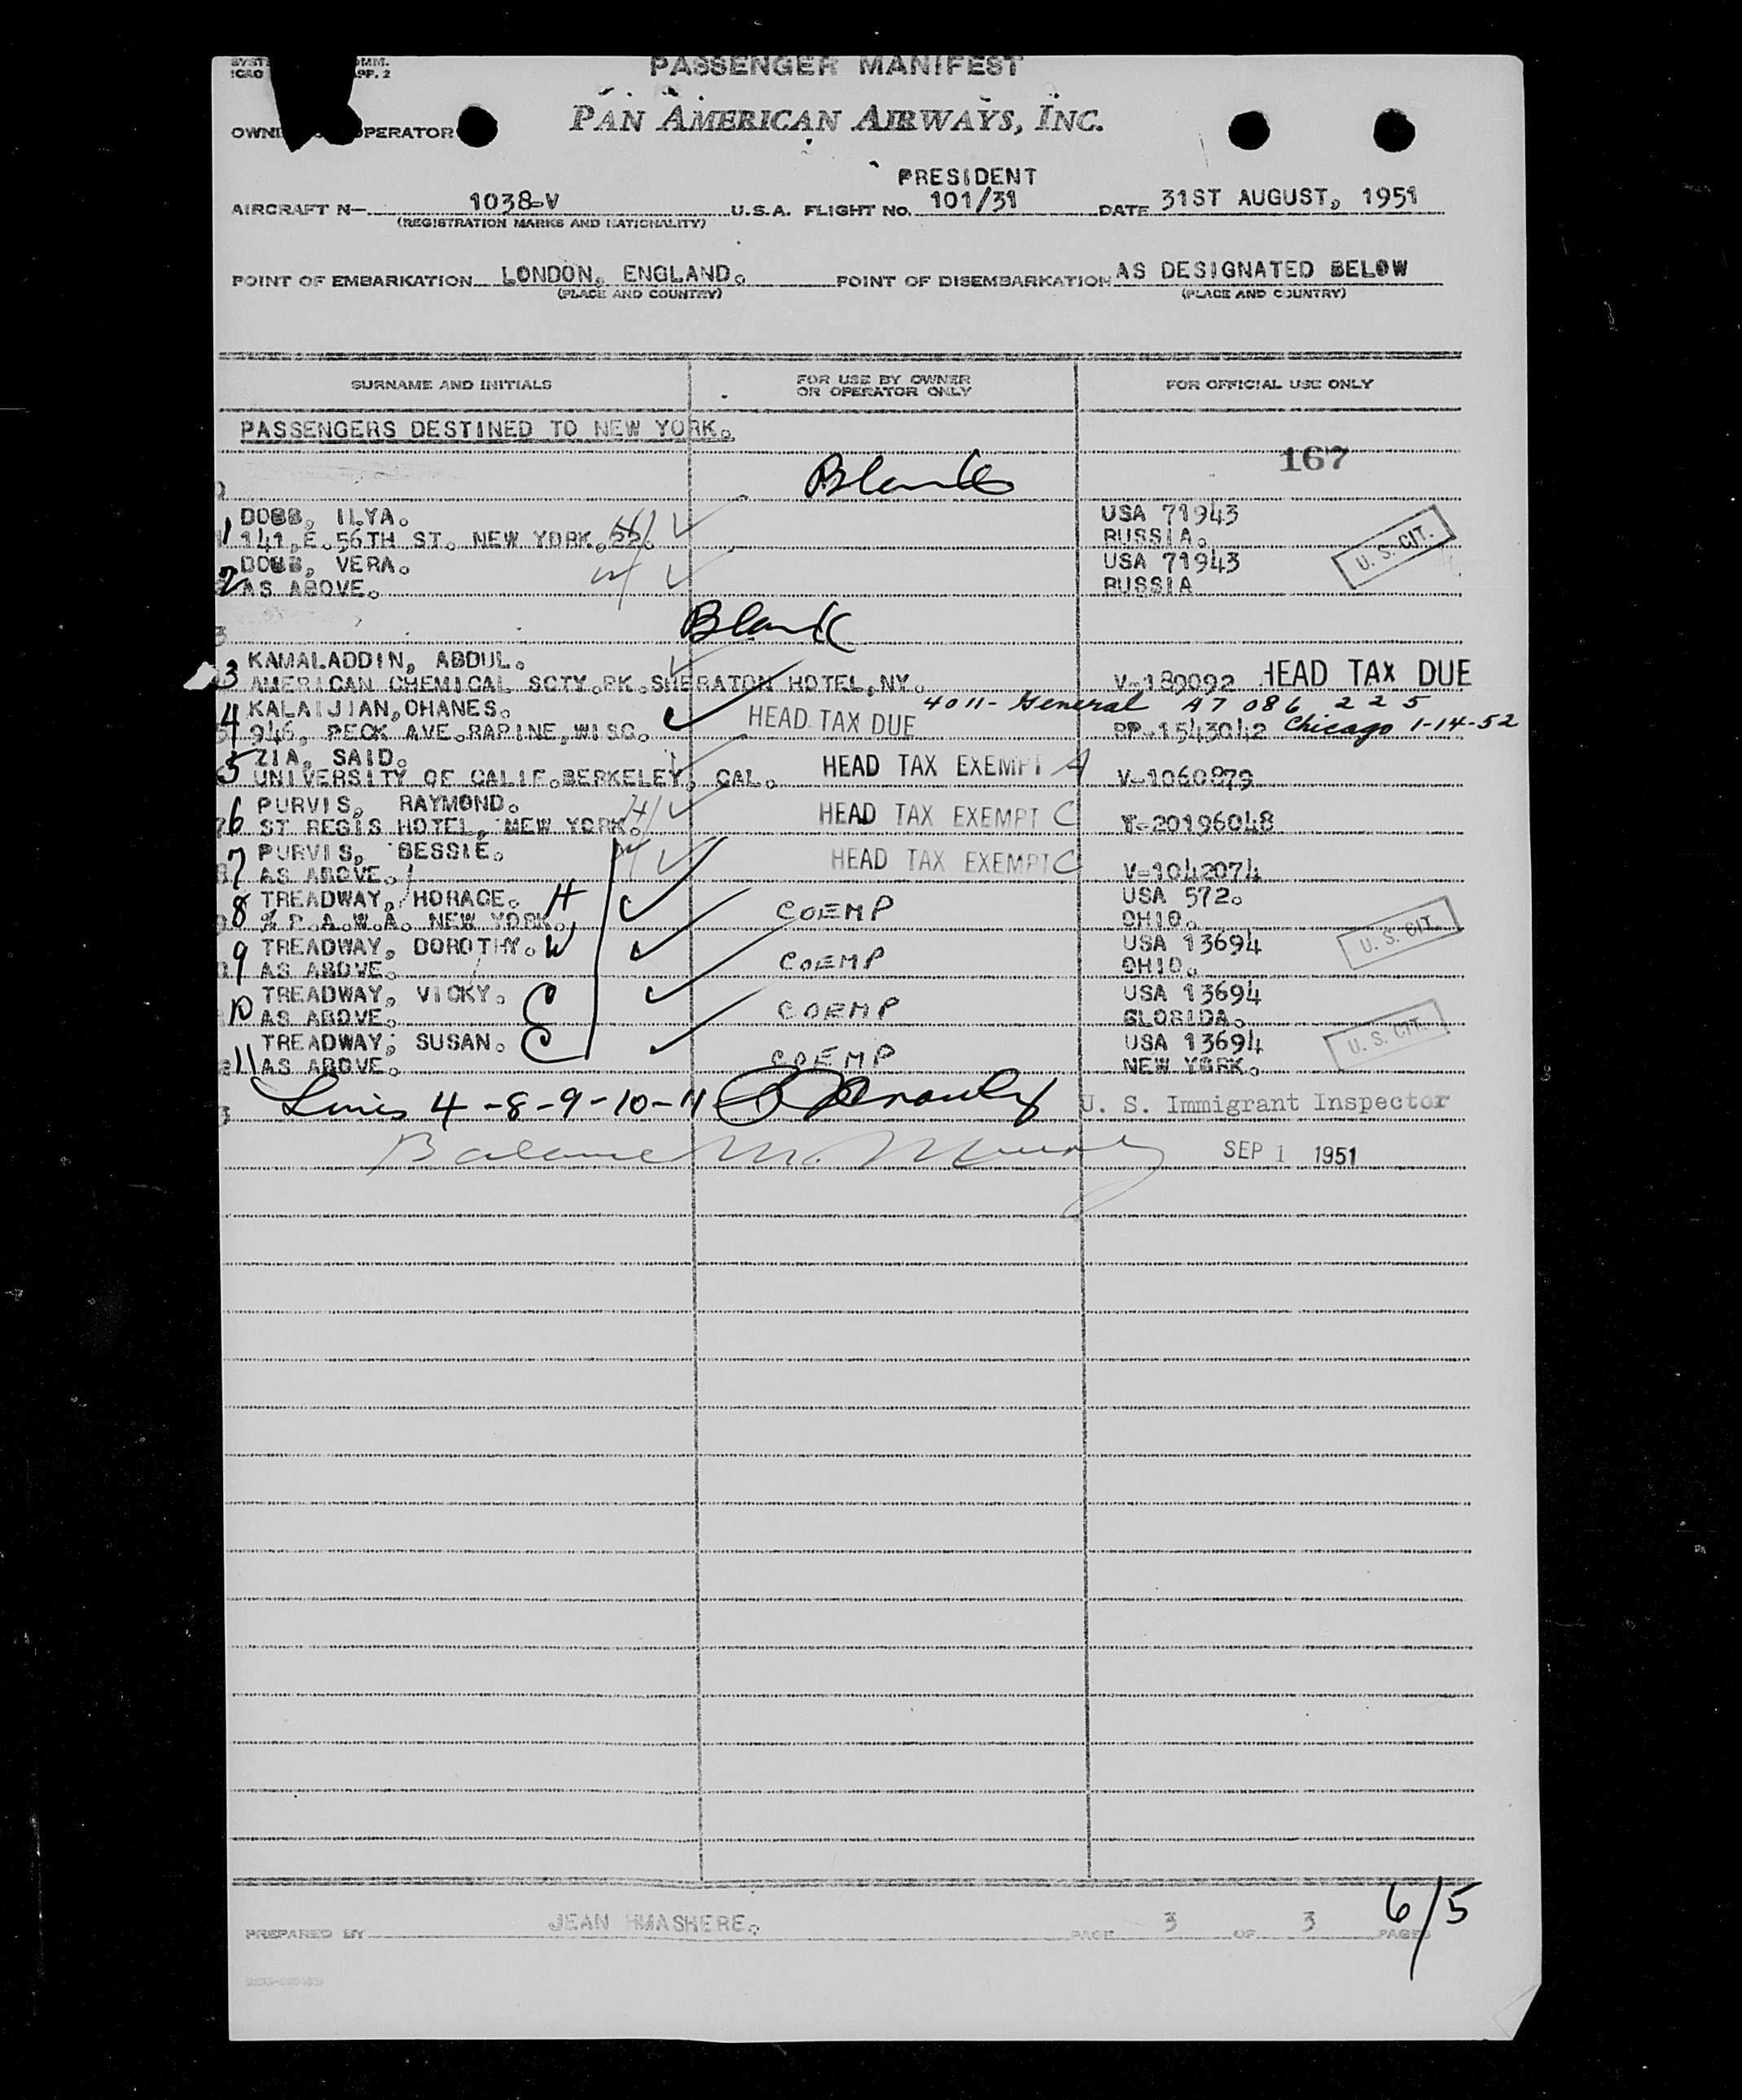 PASSENGER MANIFEST
OPERATOR PAN AMERICAN AIRWAYS, INC.
PRESIDENT
AIRCRAFT N— 1038-V U.S.A. FLIGHT NO. 101/31 DATE 31ST AUGUST, 1951
(REGISTRATION MARKS AND NATIONALITY)
POINT OF EMBARKATION LONDON, ENGLAND. POINT OF DISEMBARKATION AS DESIGNATED BELOW
(PLACE AND COUNTRY) (PLACE AND COUNTRY)
SURNAME AND INITIALS FOR USE BY OWNER OR OPERATOR ONLY FOR OFFICIAL USE ONLY
PASSENGERS DESTINED TO NEW YORK.
167
Blank
DOBB, ILYA. USA 71943
1 141,E.56TH ST. NEW YORK, H RUSSIA. U. S. CIT.
DOBB, VERA. W USA 71943
2 AS ABOVE. RUSSIA
Blank
KAMALADDIN, ABDUL.
3 AMERICAN CHEMICAL SCTY.PK.SHERATON HOTEL,NY. V-189092 HEAD TAX DUE
KALAIJIAN,OHANES. 4011- General A7 086 225
4 946, PECK AVE.RAPINE,WISC. HEAD TAX DUE RP-1543042 Chicago 1-14-52
ZIA, SAID. HEAD TAX EXEMPT A
5 UNIVERSITY OF CALIF.BERKELEY, CAL. V-1060879
PURVIS, RAYMOND. H HEAD TAX EXEMPT C
6 ST REGIS HOTEL, NEW YORK. T-20196048
PURVIS, BESSIE. W HEAD TAX EXEMPT C
7 AS ABOVE. V-1042074
TREADWAY, HORACE. H USA 572.
8 % P.A.W.A. NEW YORK. COEMP OHIO. U. S. CIT.
TREADWAY, DOROTHY. W USA 13694
9 AS ABOVE. COEMP OHIO.
TREADWAY, VICKY. C USA 13694
10 AS ABOVE. COEMP GLORIDA.
TREADWAY, SUSAN. C USA 13694 U. S. CIT.
11 AS ABOVE. COEMP NEW YORK.
Lines 4-8-9-10-11 U. S. Immigrant Inspector
Balance M. SEP 1 1951
6/5
PREPARED BY JEAN HMASHERE. PAGE 3 OF 3 PAGES